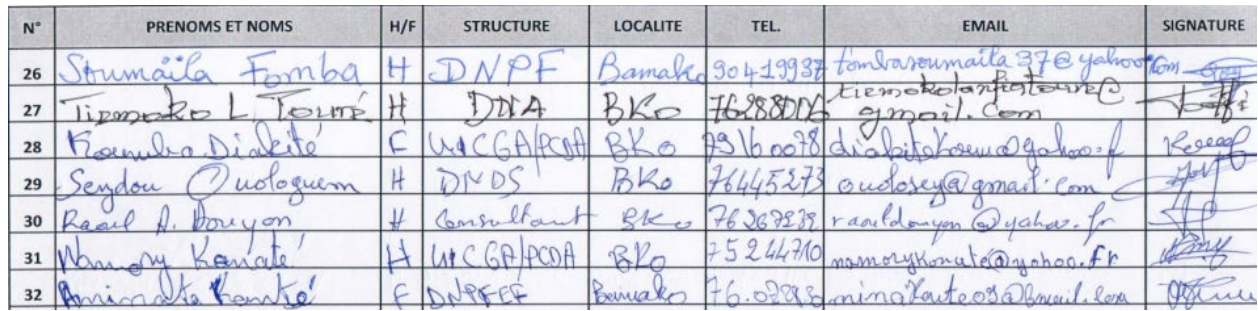 N° PRENOMS ET NOMS H/F STRUCTURE LOCALITE TEL. EMAIL SIGNATURE
26 Soumaïla Fomba H DNPF Bamako 90419937 fombasoumaila37@yahoo.com
27 Tiemoko L. Touré H DNA BKo gmail.com
28 Diakité F UCGA/PCDA BKo 79160078
29 Seydou Ouologuem H DNDS BKo 76445273 ouolosey@gmail.com
30 Raoul A. Douyon H Consultant BKo 76267239 raouldouyon@yahoo.fr
31 Namory Konaté H UCGA/PCDA BKo 75244710 namorykonate@yahoo.fr
32 Aminata Kanté F DNPFEF Bamako